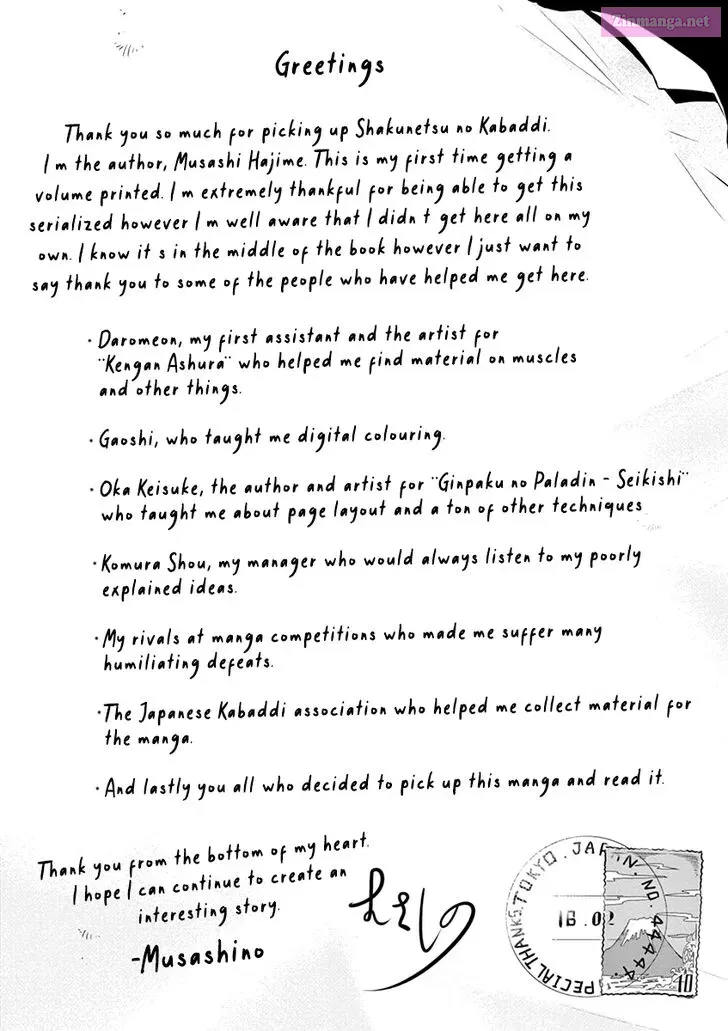 Zinmanga.net
Greetings
Thank you so much for picking up Shakunetsu no Kabaddi.
I m the author, Musashi Hajime. This is my first time getting a
volume printed. I m extremely thankful for being able to get this
serialized however I m well aware that I didn t get here all on my
own. I know it s in the middle of the book however I just want to
say thank you to some of the people who have helped me get here.
· Daromeon, my first assistant and the artist for
¨Kengan Ashura¨ who helped me find material on muscles
and other things.
· Gaoshi, who taught me digital colouring.
· Oka Keisuke, the author and artist for ¨Ginpaku no Paladin - Seikishi¨
who taught me about page layout and a ton of other techniques
· Komura Shou, my manager who would always listen to my poorly
explained ideas.
· My rivals at manga competitions who made me suffer many
humiliating defeats.
· The Japanese Kabaddi association who helped me collect material for
the manga.
· And lastly you all who decided to pick up this manga and read it.
Thank you from the bottom of my heart.
I hope I can continue to create an
interesting story.
-Musashino
SPECIAL THANKS. TOKYO. JAPAN. NO. 44444.
16.02
10